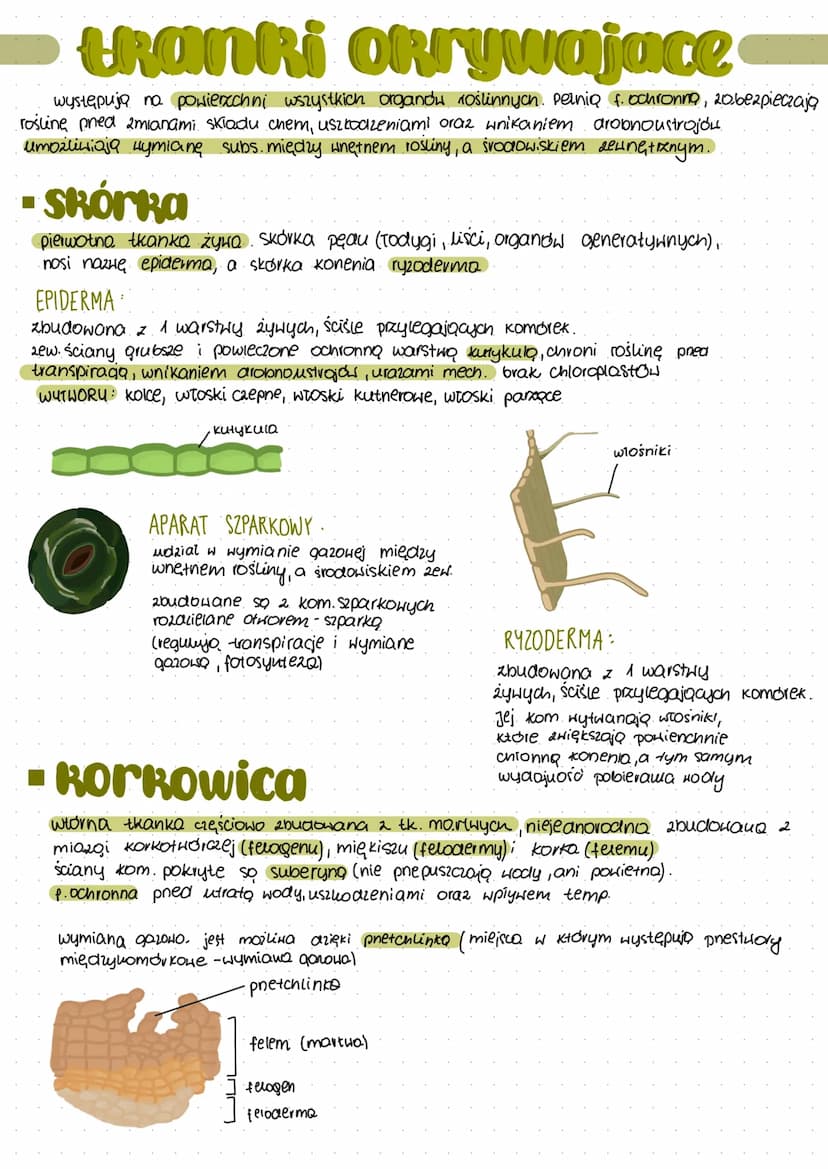 tkanki okrywające
występują na powierzchni wszystkich organów roślinnych. pełnią f. ochronną, zabezpieczają
roślinę przed zmianami składu chem, uszkodzeniami oraz wnikaniem drobnoustrojów
umożliwiają wymianę subs. między wnętrzem rośliny, a środowiskiem zewnętrznym.
▪ skórka
pierwotna tkanka żywa. skórka pędu (łodygi, liści, organów generatywnych),
nosi nazwę epiderma, a skórka korzenia ryzoderma
EPIDERMA:
zbudowana z 1 warstwy żywych, ściśle przylegających komórek.
zew. ściany grubsze i powleczone ochronną warstwą kutykulą, chroni roślinę przed
transpiracją, wnikaniem drobnoustrojów, urazami mech. brak chloroplastów
WYTWORY: kolce, włoski czepne, włoski kutnerowe, włoski parzące
kutykula
włośniki
APARAT SZPARKOWY.
udział w wymianie gazowej między
wnętrzem rośliny, a środowiskiem zew.
zbudowane są z kom. szparkowych
rozdzielane otworem - szparką
(regulują transpiracje i wymiane
gazową, fotosynteza)
RYZODERMA:
zbudowana z 1 warstwy
żywych, ściśle przylegających komórek.
Jej kom wytwarzają włośniki,
które zwiększają powierzchnie
chłonną korzenia, a tym samym
wydajność pobierania wody
▪ korkowica
wtórna tkanka częściowo zbudowana z tk. martwych, niejednorodna zbudowana z
miazgi korkotwórczej (felogenu), miękiszu (felodermy) i korka (felemu)
ściany kom. pokryte są suberyną (nie przepuszczają wody, ani powietrza).
f. ochronna przed utratą wody, uszkodzeniami oraz wpływem temp.
wymiana gazowa. jest możliwa dzięki przetchlinką (miejsca w którym występują przestwory
międzykomórkowe - wymiana gazowa)
przetchlinka
felem (martwa)
felogen
feloderma